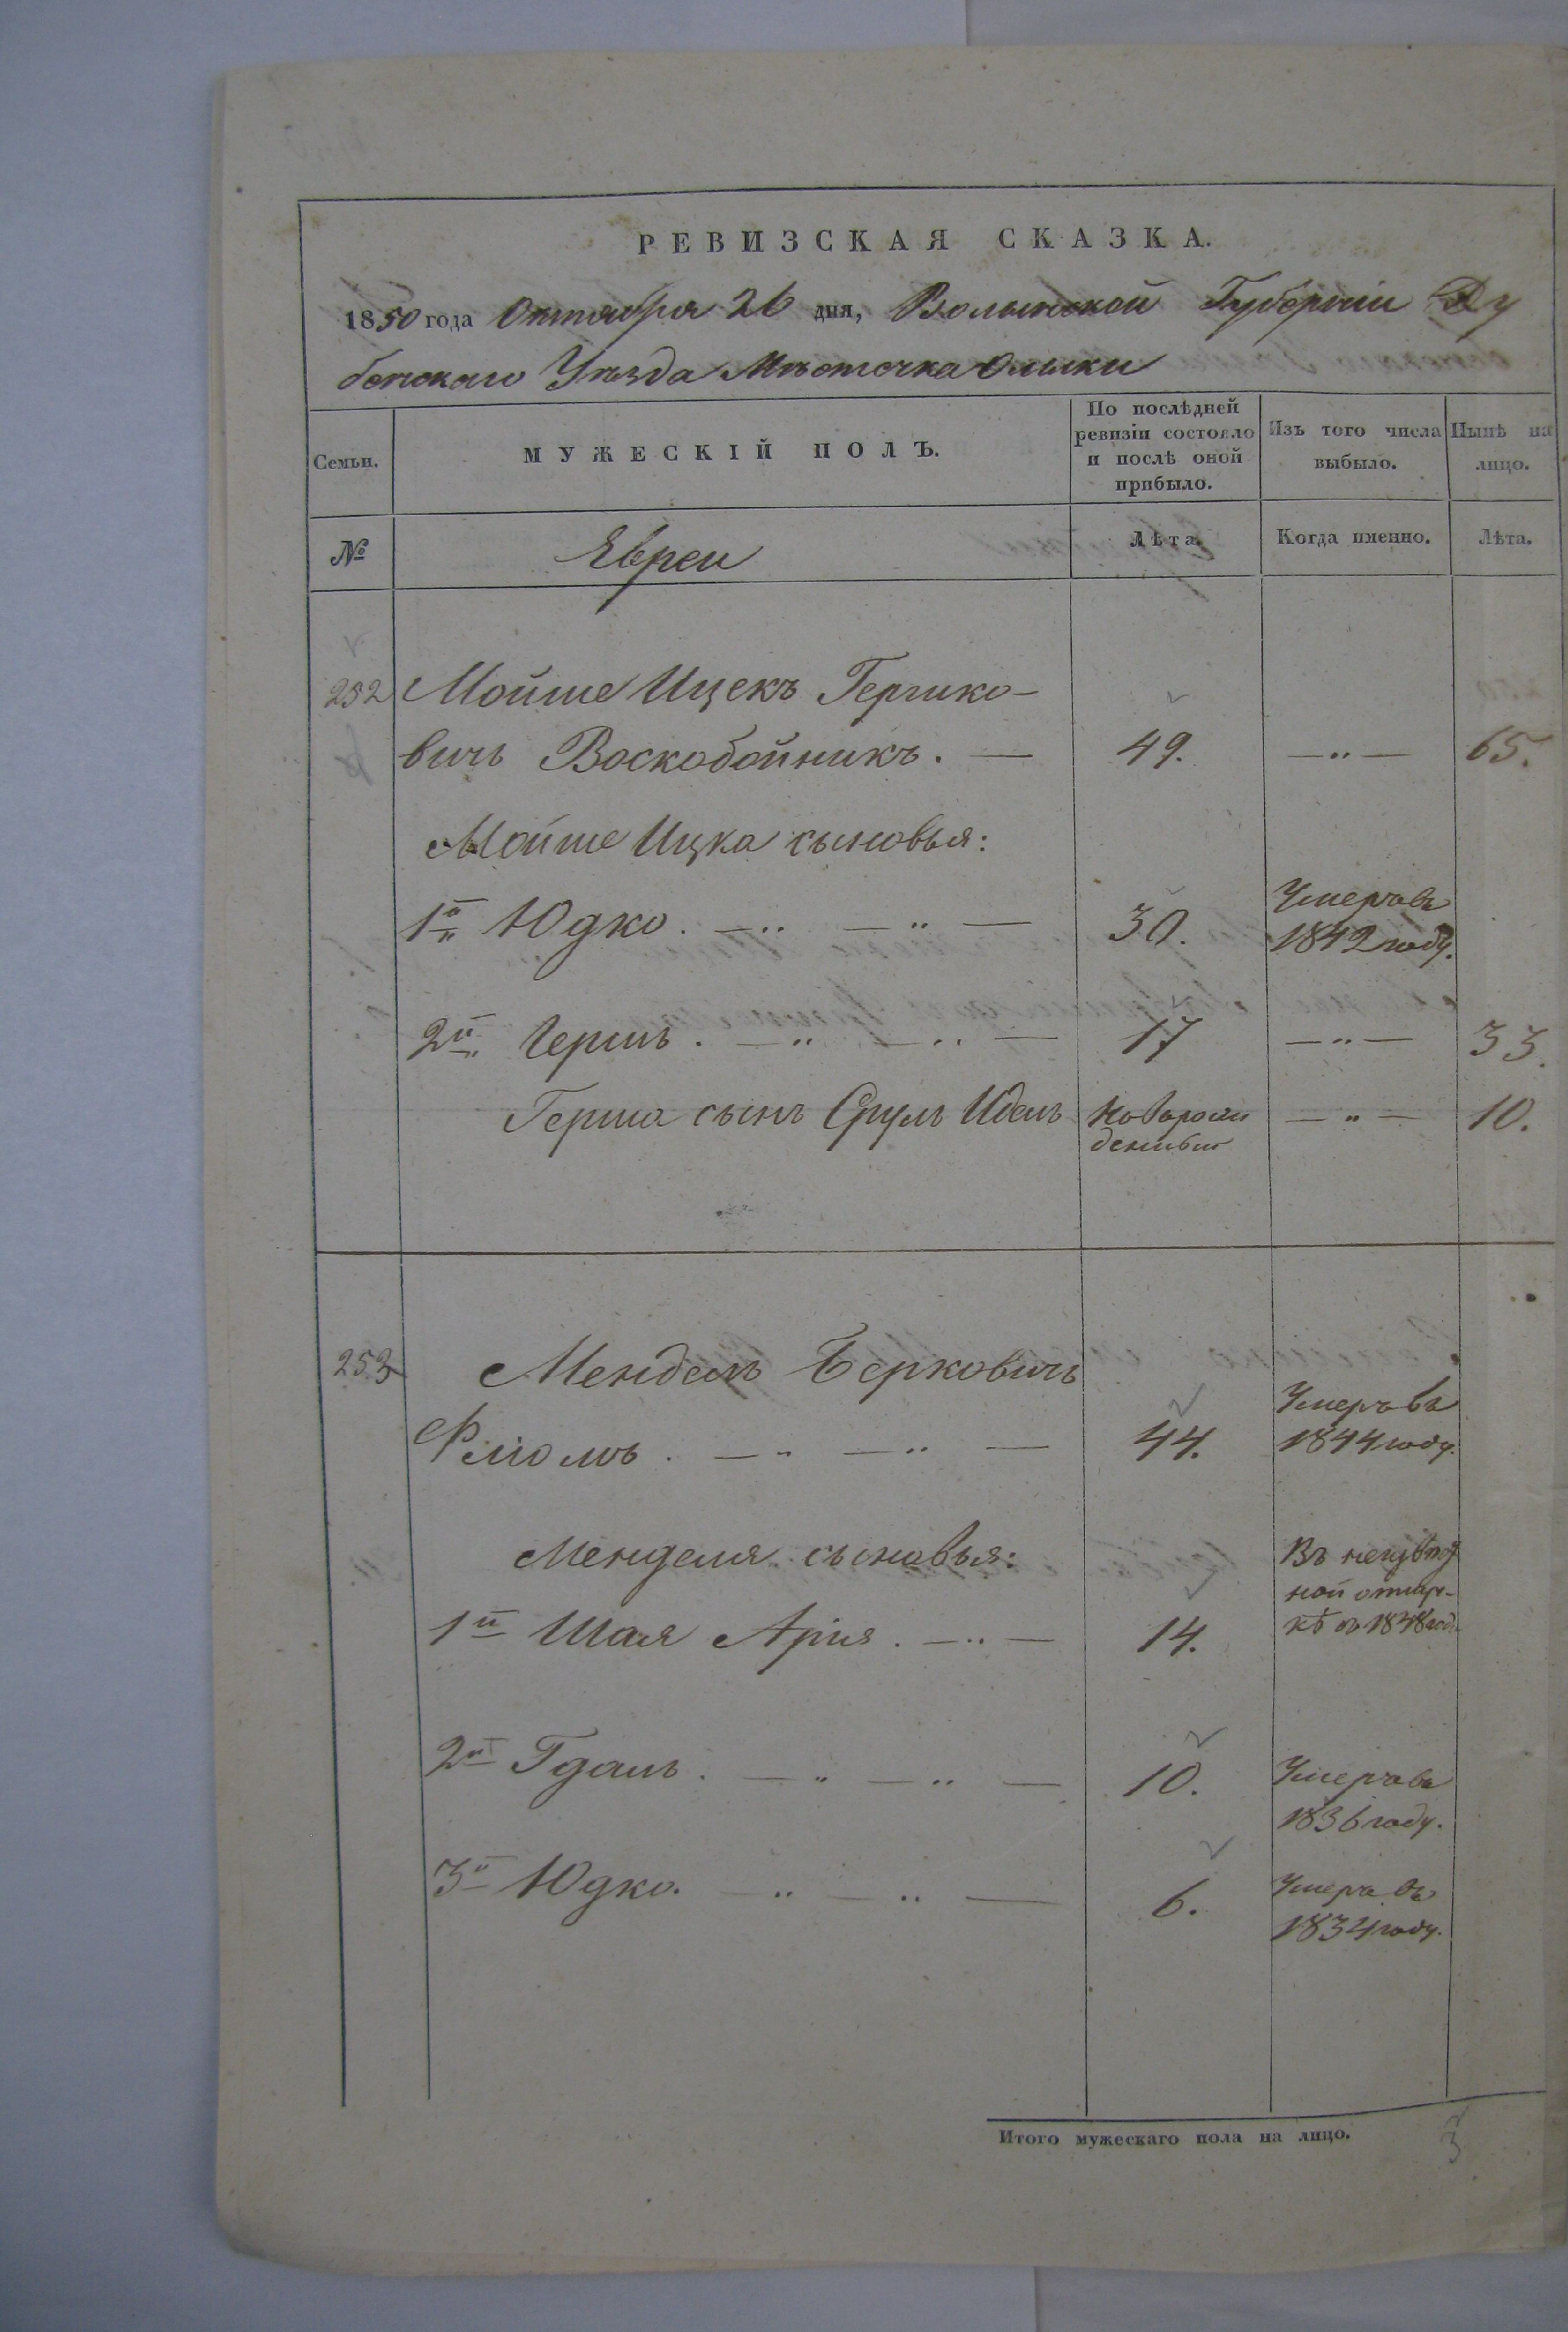 РЕВИЗСКАЯ СКАЗКА.
1850 года Октября 26 дня, Волынской Губерніи Ду
бенскаго Уѣзда Мѣстечка Олыки
Семьи.
МУЖЕСКІЙ ПОЛЪ.
По послѣдней
ревизіи состояло
и послѣ оной
прибыло.
Изъ того числа
выбыло.
Нынѣ на
лицо.
№
Евреи
Лѣта.
Когда именно.
Лѣта.
252 Мойше Ицекъ Гершко-
вичъ Воскобойникъ. — 49. —"— 65.
Мойше Ицка сыновья:
1й Юдко. —"— —"— 30. Умеръ въ
1842 году.
2й Гершъ. —"— —"— 17 —"— 33.
Герша сынъ Сруль Идель Новорож
денный —"— 10.
253 Мендель Берковичъ
Фліомъ. —"— —"— 44. Умеръ въ
1844 году.
Менделя сыновья:
1й Шая Арія. —"— 14. Въ неизвѣст
ной отлуч-
кѣ въ 1848 год.
2й Гдаль. —"— —"— 10. Умеръ въ
1836 году.
3й Юдко. —"— —"— 6. Умеръ въ
1834 году.
Итого мужескаго пола на лицо. 3